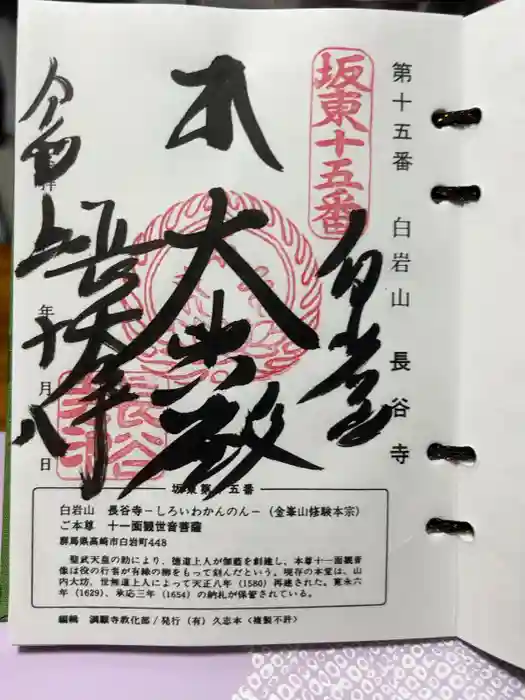 第十五番 白岩山 長谷寺
坂東十五番
白岩山
大悲殿
長谷寺
令和
年 月 日
十 八
坂東第十五番
白岩山 長谷寺－しろいわかんのん－（金峯山修験本宗）
ご本尊 十一面観世音菩薩
群馬県高崎市白岩町448
聖武天皇の勅により、徳道上人が伽藍を創建し、本尊十一面観音
像は役の行者が有縁の柳をもって刻んだという。現存の本堂は、山
内大坊、世無道上人によって天正八年（1580）再建された。寛永六
年（1629）、承応三年（1654）の納札が保管されている。
編輯 満願寺教化部／発行（有）久志本＜複製不許＞